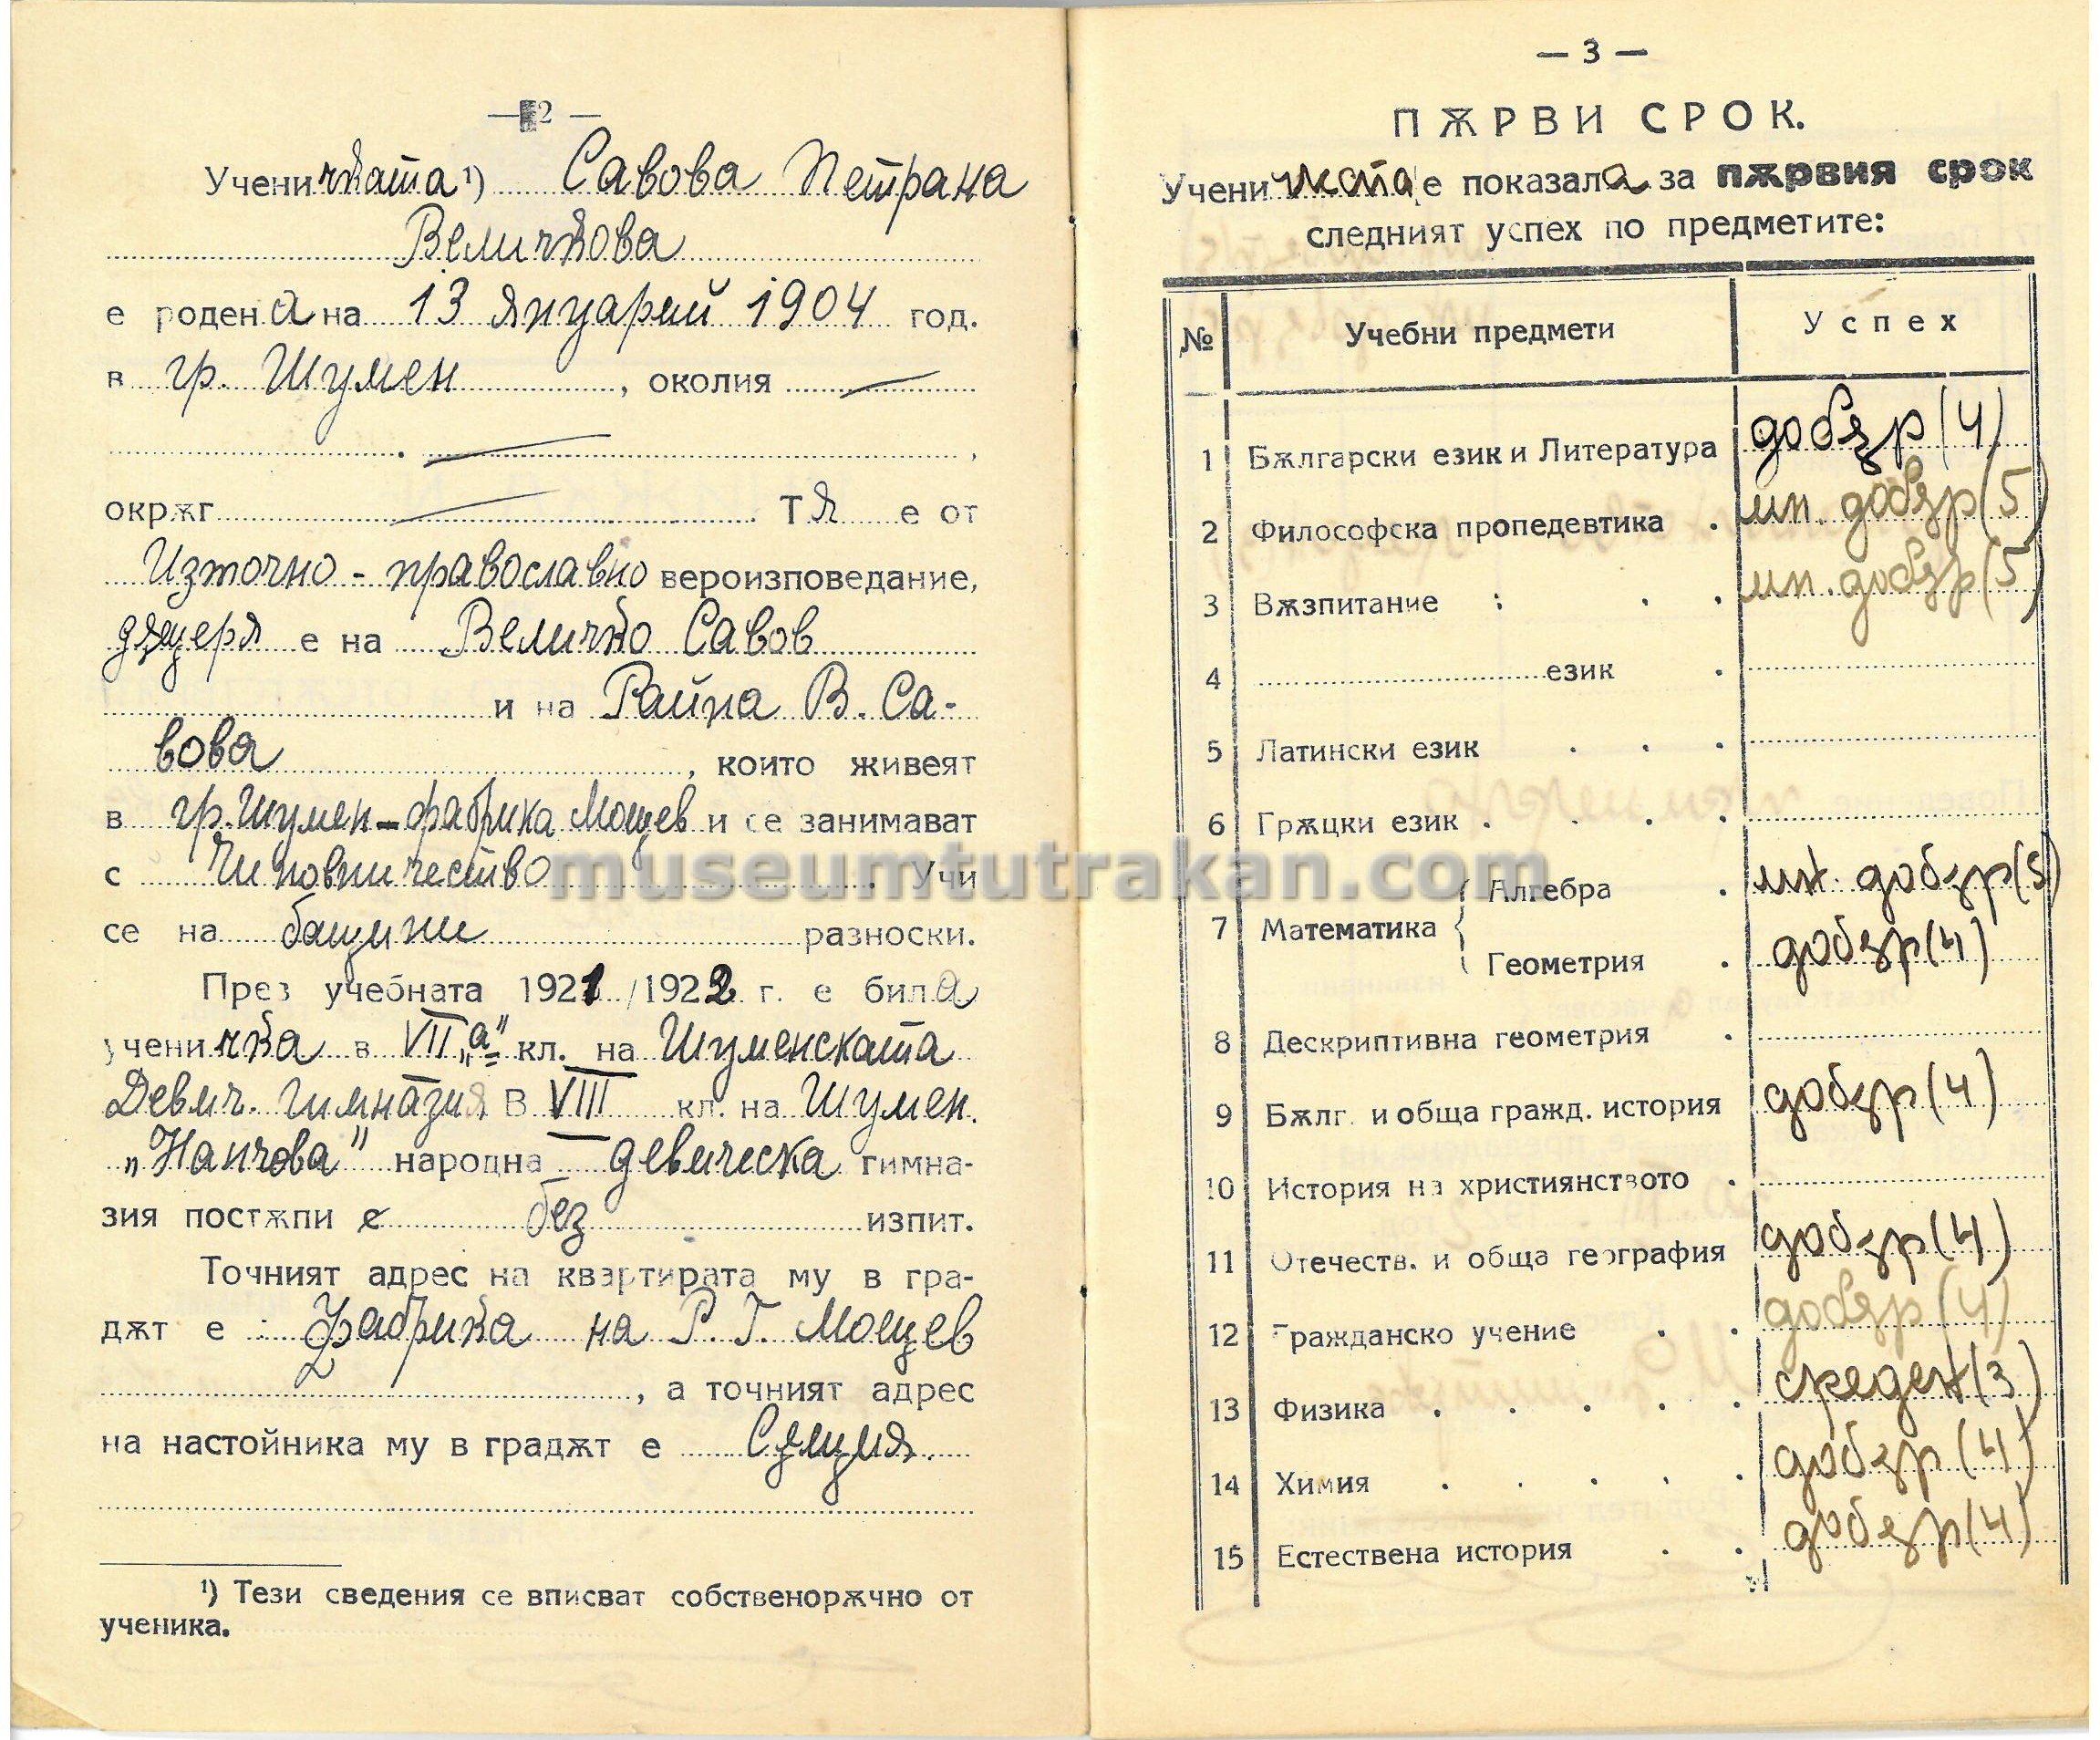 — 2 —
Ученичката ¹) Савова Петрана
Величкова
е родена на 13 януарий 1904 год.
в гр. Шумен, околия —
. — ,
окрѫг — . Тя е от
Източно - православно вероизповедание,
дъщеря е на Величко Савов
и на Райна В. Са-
вова, които живеят
в гр. Шумен – фабрика Мощев и се занимават
с Чиновничество. Учи
се на бащини разноски.
През учебната 1921/1922 г. е била
ученичка в VII „а" кл. на Шуменската
Девич. гимназия В VIII кл. на Шумен.
„Нанчова" народна девическа гимна-
зия постѫпи с без изпит.
Точният адрес на квартирата му в гра-
дѫт е : Фабрика на Р. Г. Мощев
, а точният адрес
на настойника му в градѫт е Същия.
¹) Тези сведения се вписват собственорѫчно от
ученика.
— 3 —
ПѪРВИ СРОК.
Ученичката е показала за пѫрвия срок
следният успех по предметите:
№ Учебни предмети Успех
1 Бѫлгарски език и Литература добър (4)
2 Философска пропедевтика . мн. добър (5)
3 Вѫзпитание : . . мн. добър (5)
4 език .
5 Латински език . . .
6 Грѫцки език . . . .
7 Математика { Алгебра . мн. добър (5)
Геометрия . добър (4)
8 Дескриптивна геометрия .
9 Бѫлг. и обща гражд. история добър (4)
10 История на християнството .
11 Отечеств. и обща география добър (4)
12 Гражданско учение . . добър (4)
13 Физика . . . . . среден (3)
14 Химия . . . . . добър (4)
15 Естествена история . . добър (4)
museumtutrakan.com